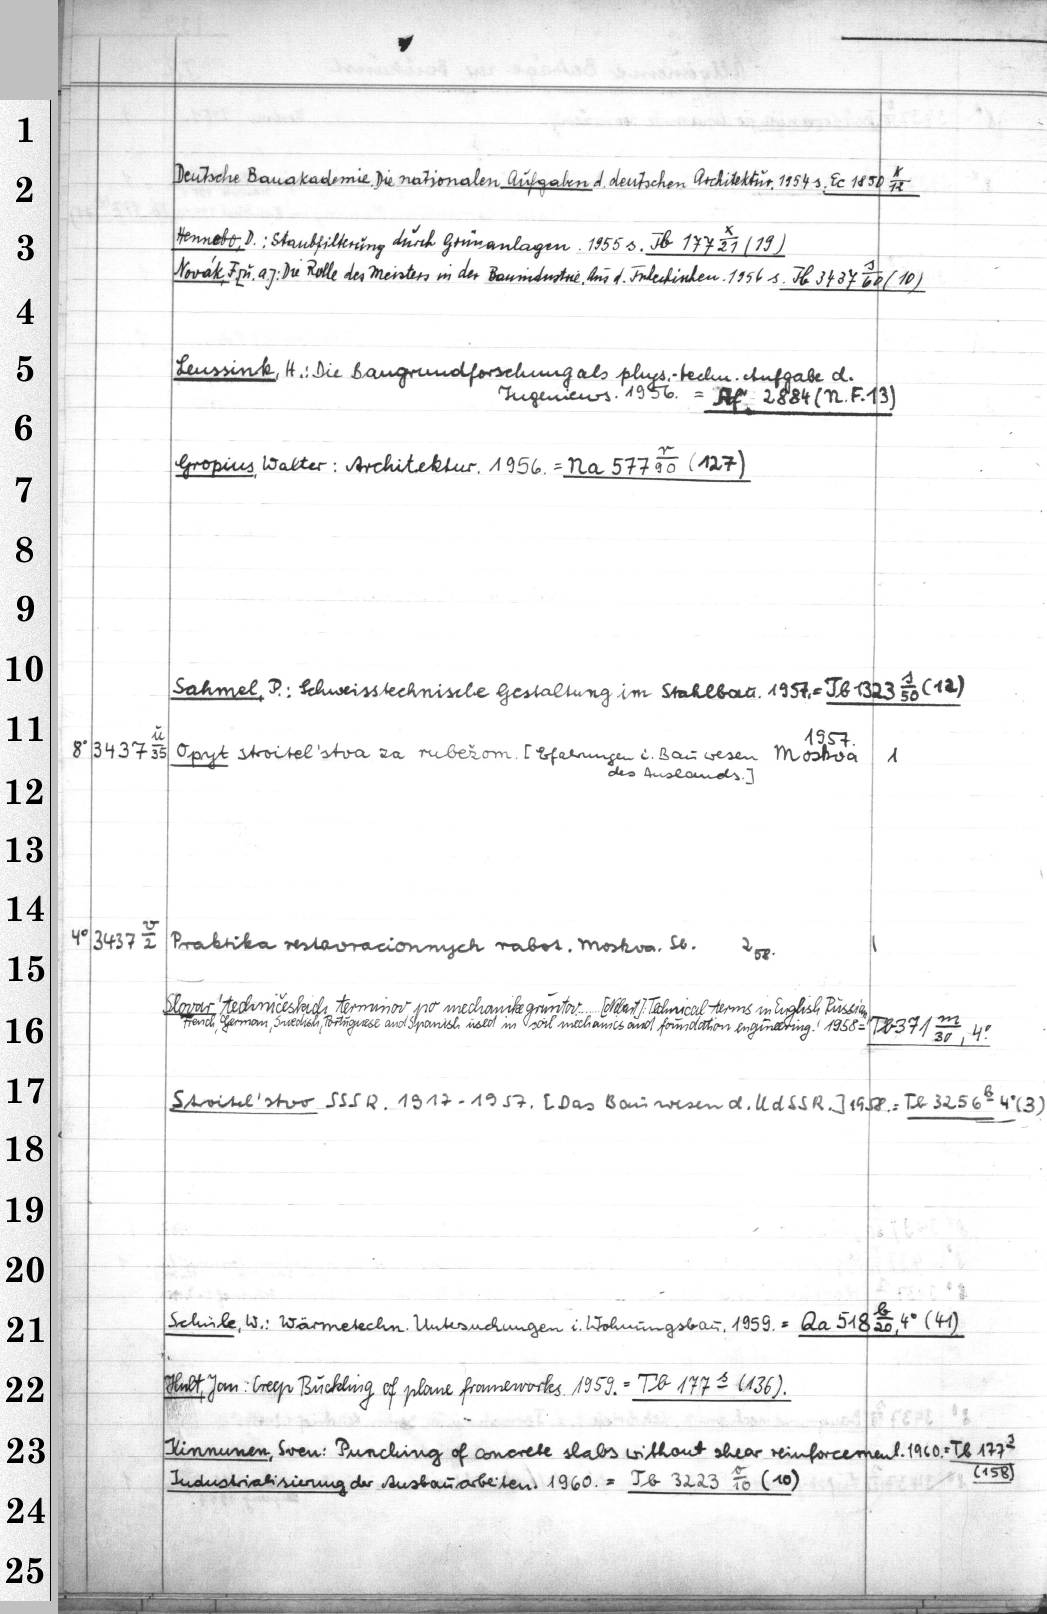 1
2
Deutsche Bauakademie. Die nationalen Aufgaben d. deutschen Architektur. 1954 s. Ec 1850 x/12
3
Hennebo, D.: Staubfilterung durch Grünanlagen. 1955 s. Tb 177 x/21 (19)
Novák, F. [u. a.]: Die Rolle des Meisters in der Bauindustrie. Aus d. Tschechischen. 1956 s. Tb 3437 s/60 (10)
4
5
Leussink, H.: Die Baugrundforschung als phys.-techn. Aufgabe d.
Ingenieurs. 1956. = Af 2884 (N.F.13)
6
Gropius, Walter: Architektur. 1956. = Na 577 r/90 (127)
7
8
9
10
Sahmel, P.: Schweisstechnische Gestaltung im Stahlbau. 1957. = Tb 1323 s/50 (12)
11
8° 3437 u/35 Opyt stroitel'stva za rubežom. [Erfahrungen i. Bauwesen Moskva 1957. 1
des Auslands.]
12
13
14
4° 3437 v/2 Praktika restavracionnych rabot. Moskva. Sb. 2 58. 1
15
Slovar' techničeskich terminov po mechanike gruntov... [Nebent.:] Technical terms in English, Russian,
16
French, German, Swedish, Portuguese and Spanish used in soil mechanics and foundation engineering. 1958 = Tb 371 m/30, 4°
17
Stroitel'stvo SSSR. 1917-1957. [Das Bauwesen d. UdSSR.] 1958. = Tb 3256 b 4° (3)
18
19
20
21
Schüle, W.: Wärmetechn. Untersuchungen i. Wohnungsbau. 1959. = Qa 518 b/20, 4° (41)
22
Hult, Jan: Creep Buckling of plane frameworks. 1959. = Tb 177 s (136).
23
Kinnunen, Sven: Punching of concrete slabs without shear reinforcement. 1960. = Tb 177 s
(158)
Industrialisierung der Ausbauarbeiten. 1960. = Tb 3223 v/10 (10)
24
25